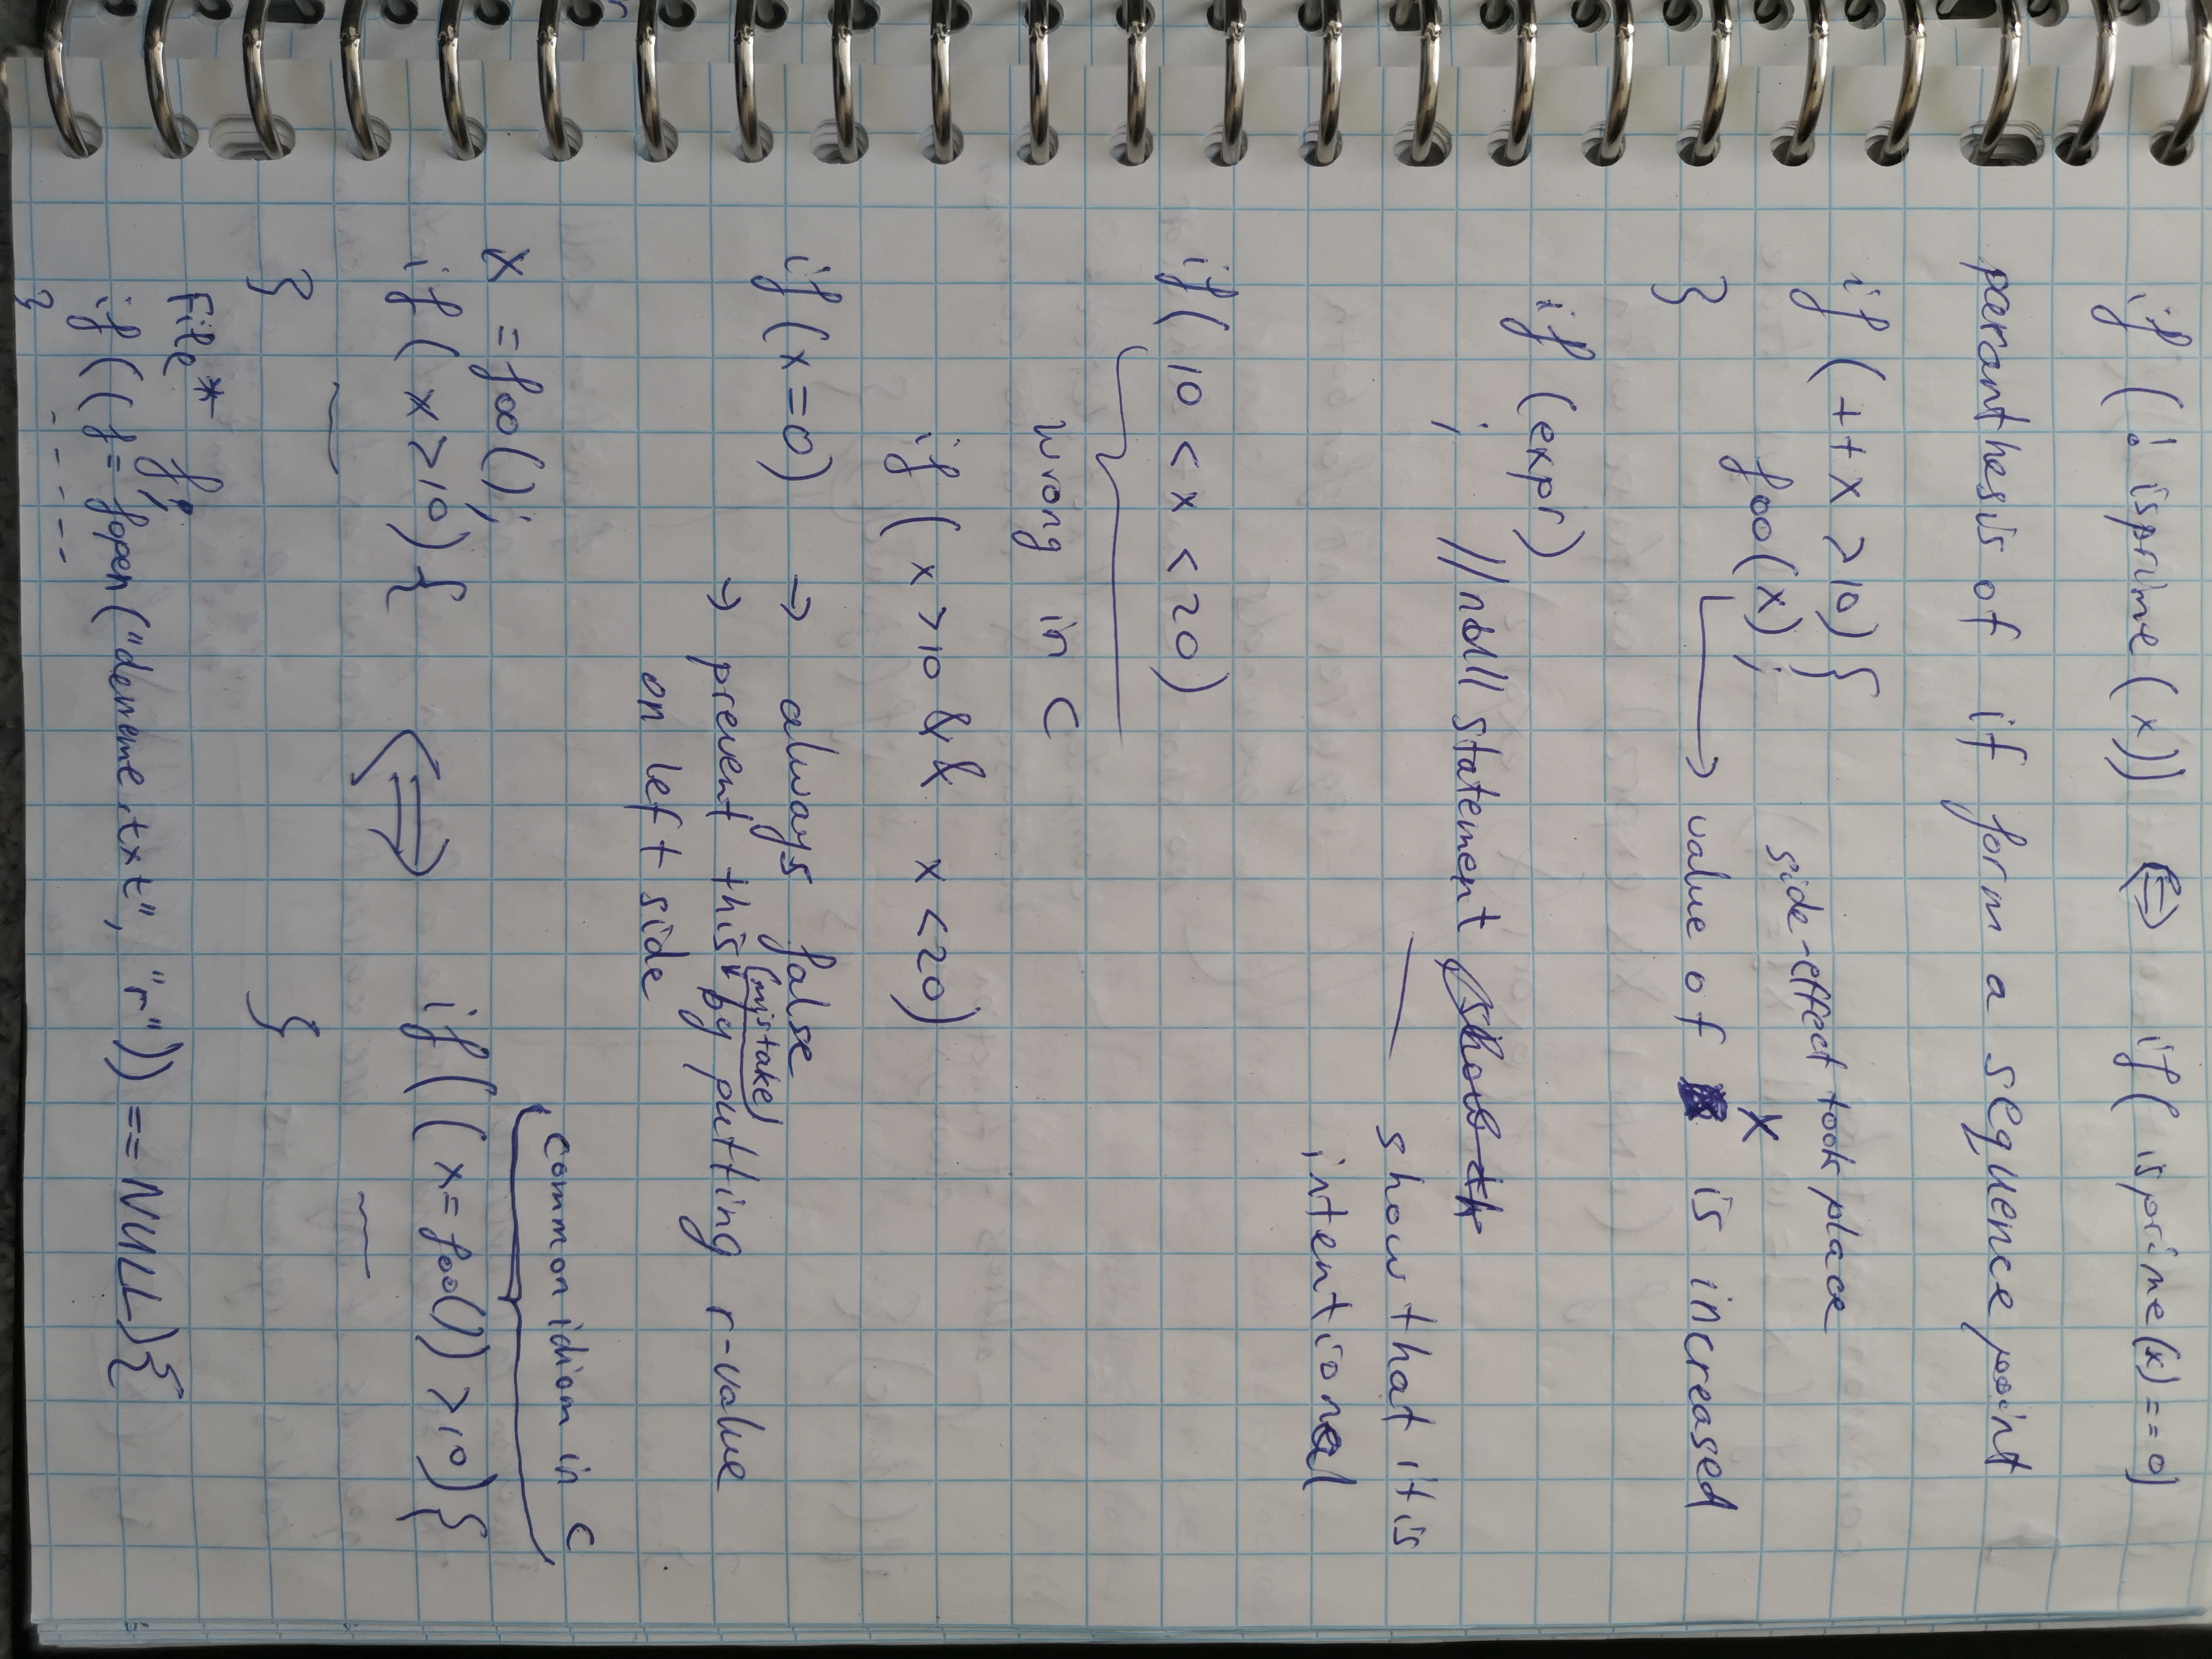 if (! isprime (x)) ⇔ if( isprime(x) == 0)
paranthesis of if form a sequence point
if (++x >10) {
side-effect took place
foo(x) ;
x
} value of is increased
if (expr)
; //null statement show th
show that it is
intentional
if( 10 < x < 20)
wrong in C
if ( x >10 && x <20)
if (x=0) → always false
(mistake)
→ prevent this by putting r-value
on left side
common idiom in C
x = foo();
if( x >10) { ⇔ if( ( x= foo()) >10) {
} }
File* f;
if(( f= fopen("deneme.txt", "r")) == NULL) {
- - - - -
}